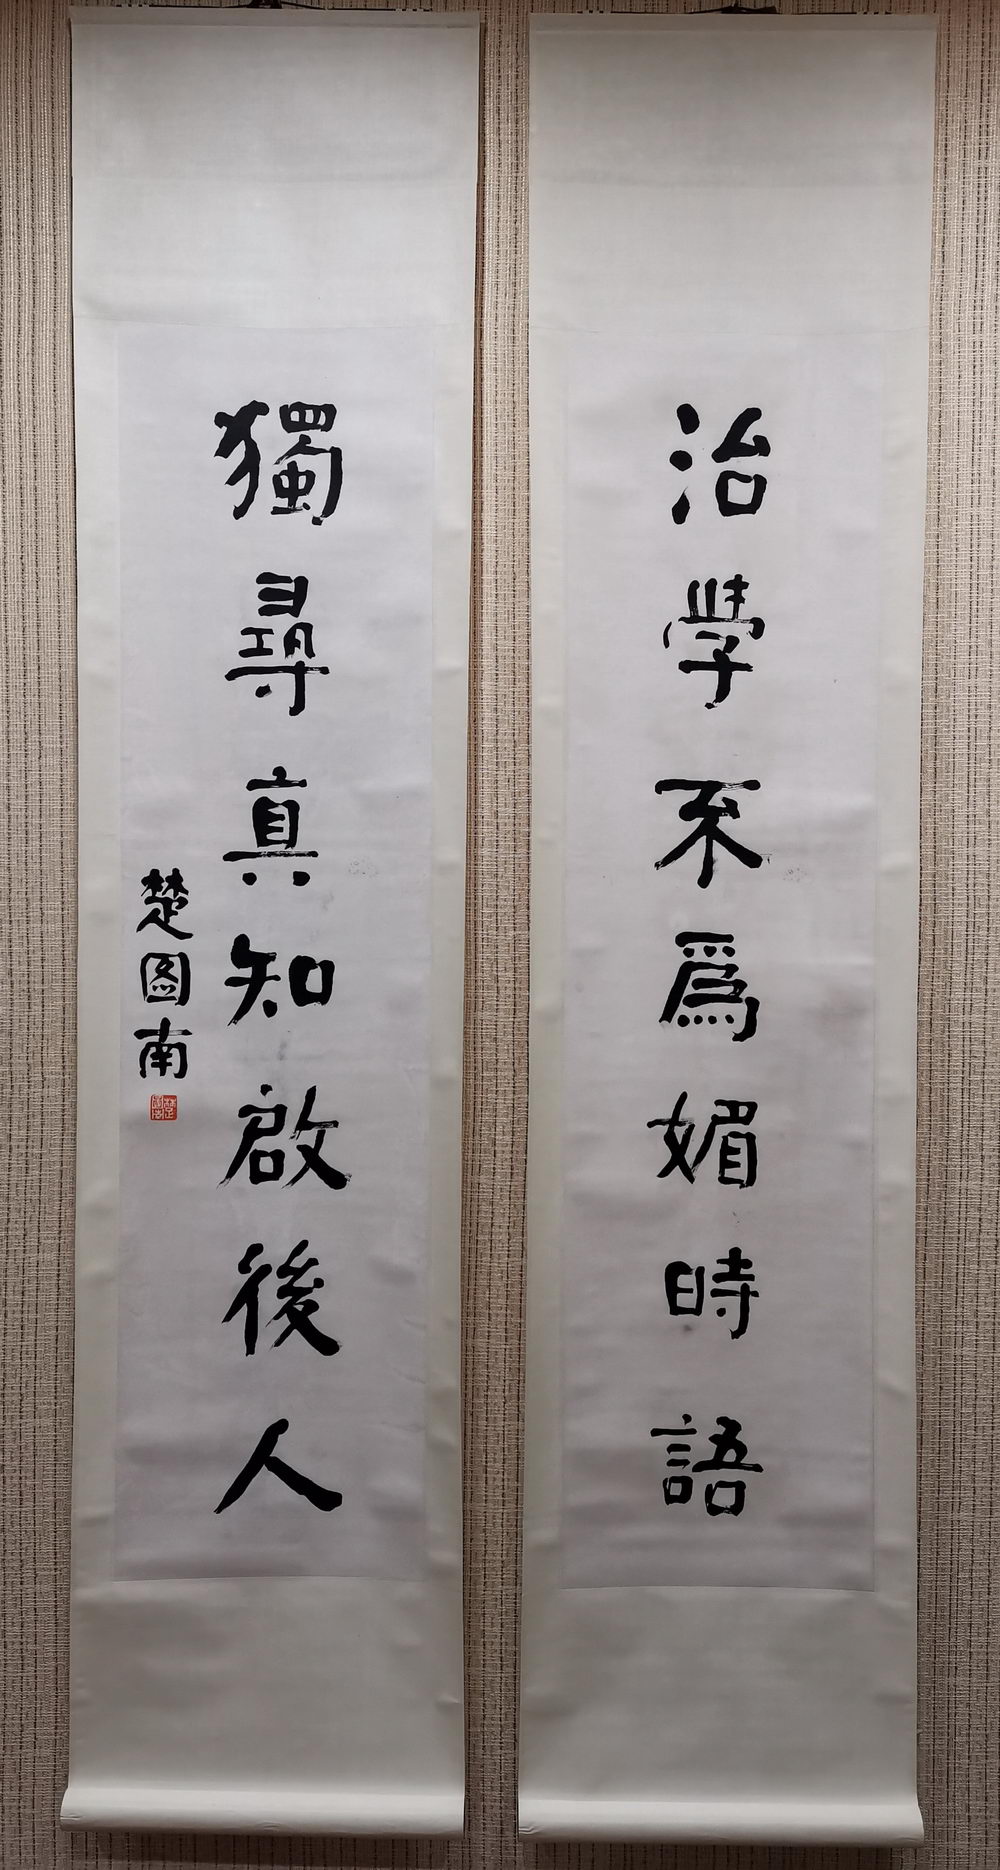 治學不爲媚時語
獨尋真知啟後人
楚圖南